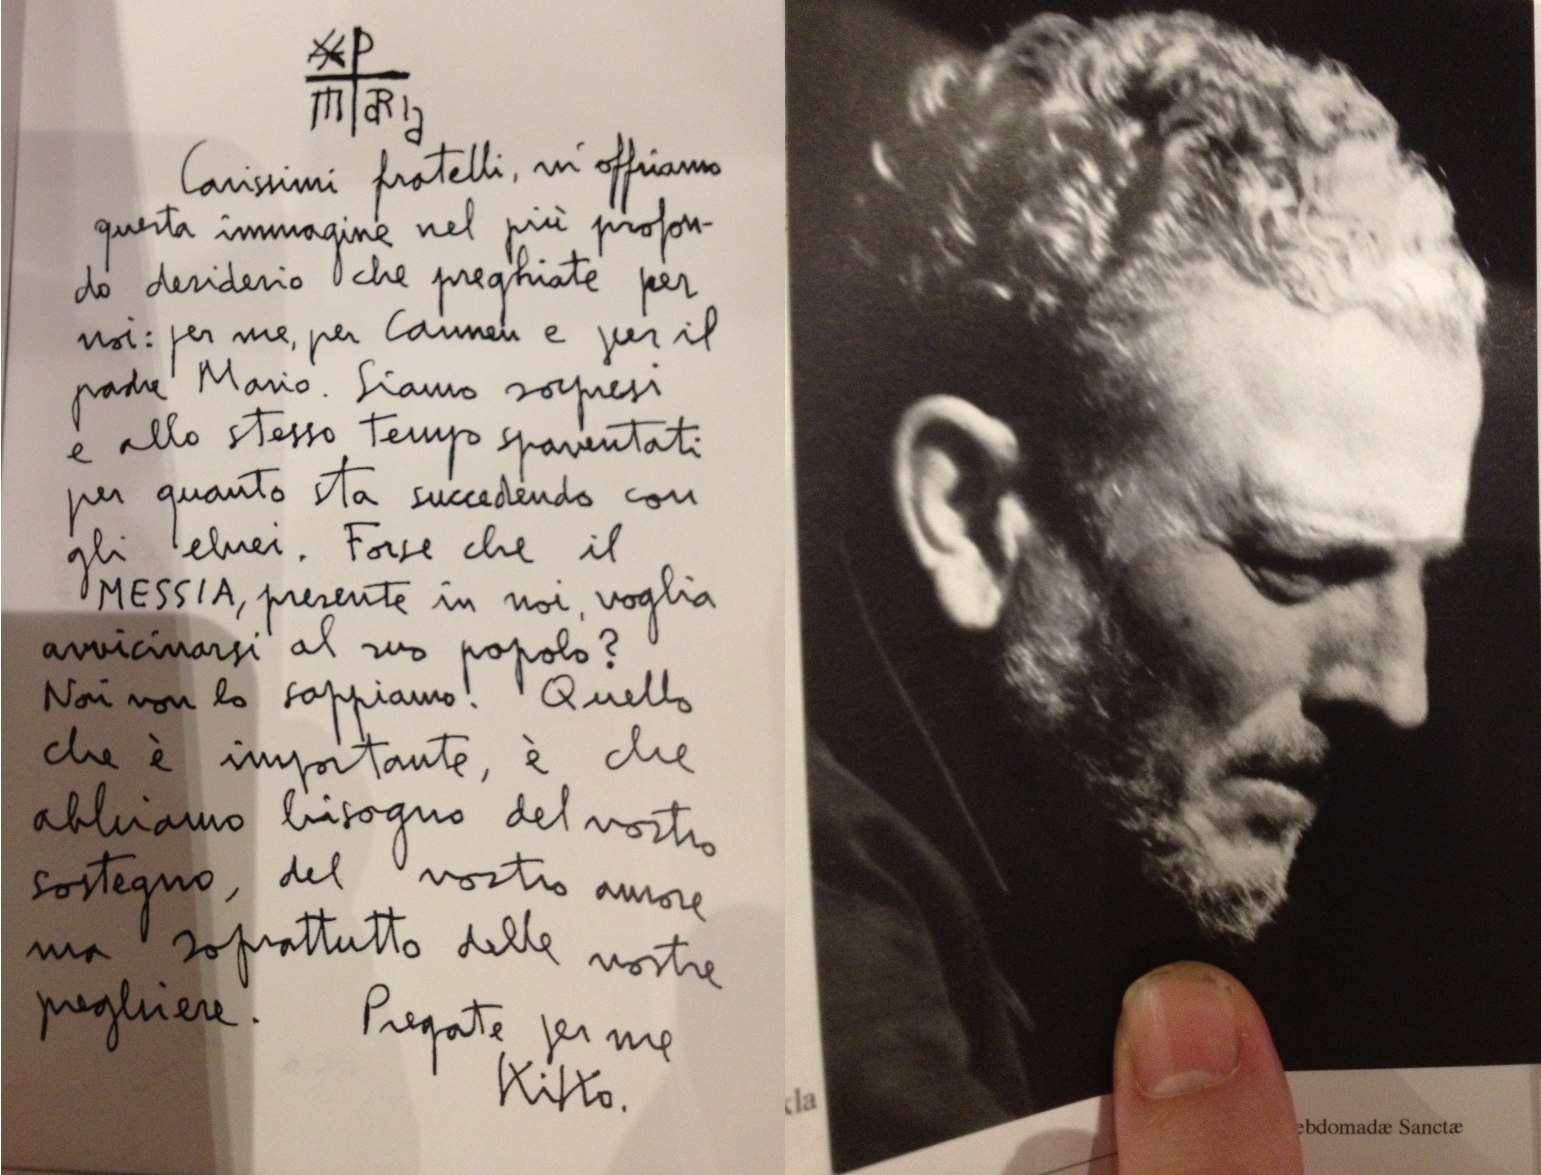 P
MARIA
Carissimi fratelli, vi offriamo
questa immagine nel più profon-
do desiderio che preghiate per
noi: per me, per Carmen e per il
padre Mario. Siamo sorpresi
e allo stesso tempo spaventati
per quanto sta succedendo con
gli ebrei. Forse che il
MESSIA, presente in noi, voglia
avvicinarsi al suo popolo?
Noi non lo sappiamo! Quello
che è importante, è che
abbiamo bisogno del vostro
sostegno, del vostro amore
ma soprattutto delle vostre
preghiere. Pregate per me
Kiko.
kla
ebdomadæ Sanctæ